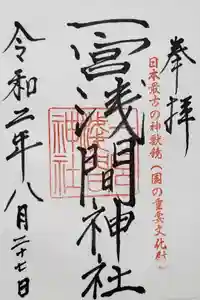 奉拝
日本最古の神獣鏡（国の重要文化財）
一宮浅間神社
神社
令和二年八月二十七日